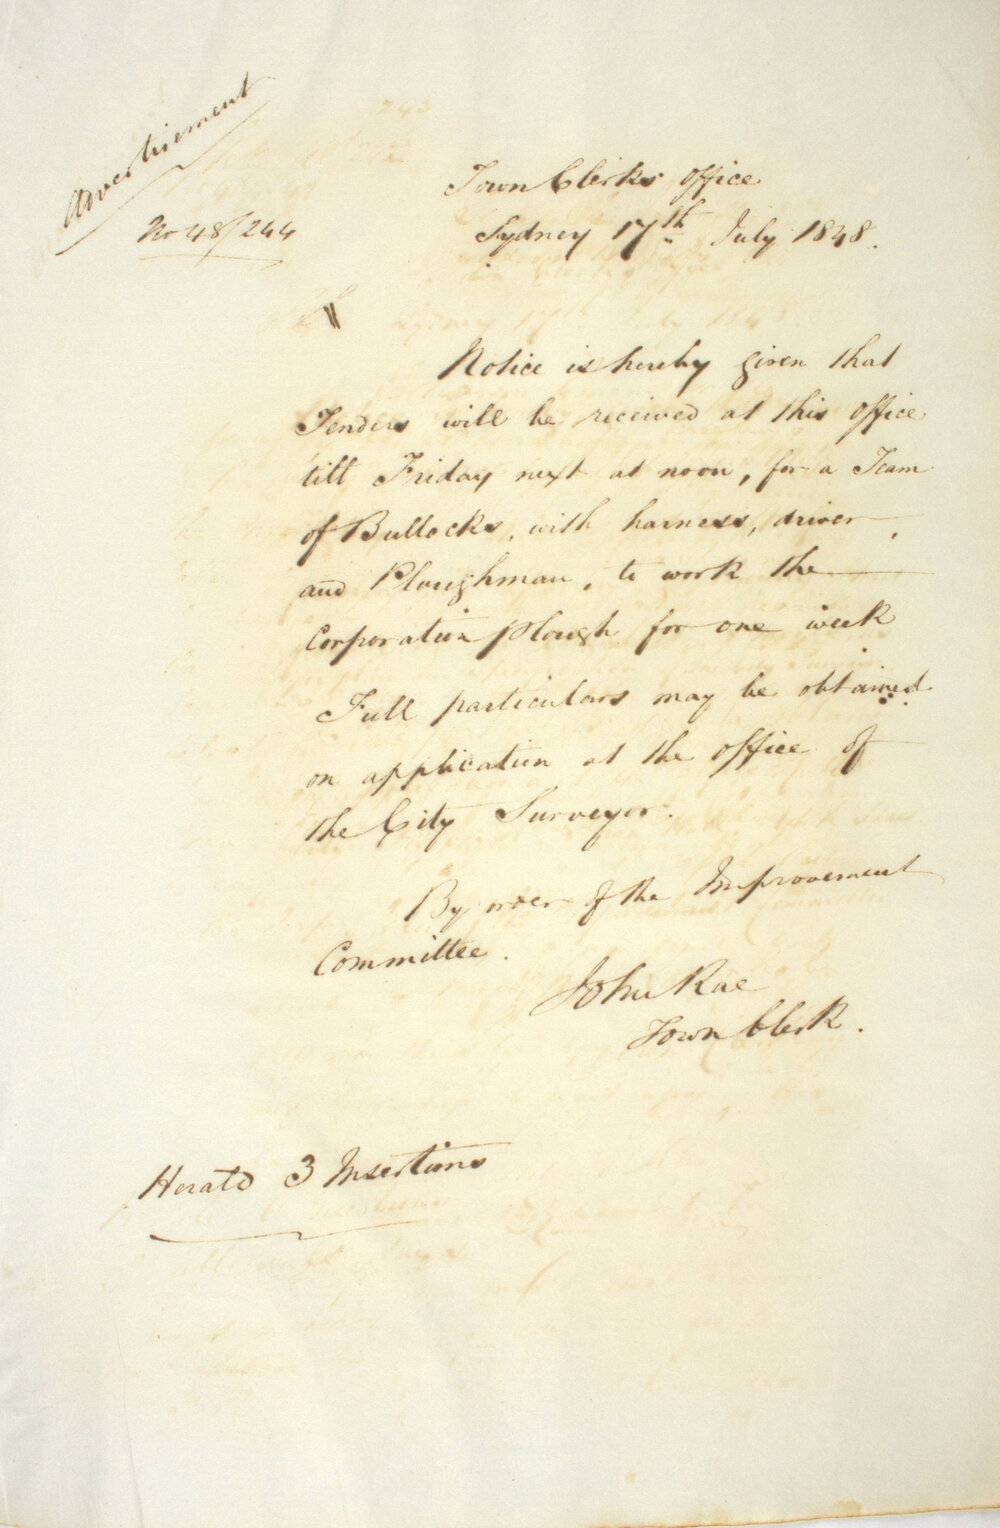 Advertisement
No 48/244
Town Clerks Office
Sydney 17th July 1848.
Notice is hereby given that
Tenders will be received at this Office
till Friday next at noon, for a Team
of Bullocks, with harness, driver,
and Ploughman, to work the
Corporation plough for one week
Full particulars may be obtained
on application at the office of
the City Surveyor.
By order of the Improvement
Committee.
John Rae
Town Clerk.
Herald 3 Insertions